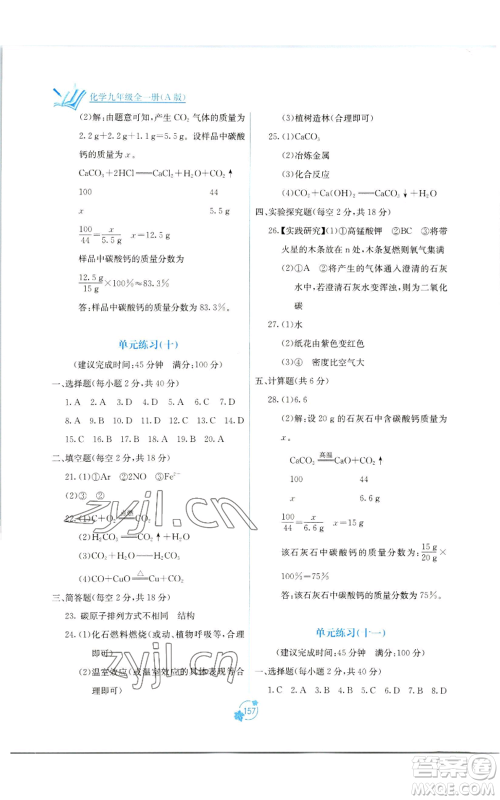 化学九年级全一册(A版)
(2)解:由题意可知,CO₂气体的质量为
2.2 g+1.1 g+2.2 g=5.5 g。设样品中碳酸
钙的质量为x。
CaCO₃+2HCl══CaCl₂+H₂O+CO₂↑
100 44
x 5.5 g
100/44=x/5.5 g
样品中碳酸钙的质量分数为
12.5 g/15 g×100%≈83.3%
答:样品中碳酸钙的质量分数为83.3%。
单元练习(十)
(建议完成时间:45分钟 满分:100分)
一、选择题(每小题2分,共40分)
1. A 2. D 3. A 4. D 5. C 6. C 7. C
8. A 9. A 10. B 11. C 12. C 13. D 14. D
15. C 16. B 17. B 18. C 19. A 20. A
二、填空题(每空2分,共18分)
21. (1)①Ar ②2NO ③Fe²⁺
(2)③ ②
22. (1)C+O₂ 点燃══ CO₂
(2)H₂CO₃
(3)CO₂+H₂O══H₂CO₃
(4)CO+CuO △══ Cu+CO₂
三、简答题(每空2分,共18分)
23. 碳原子排列方式不相同 结构
24. (1)化石燃料燃烧(或动、植物呼吸等,合理
即可)
(2)温室效应(或温室效应的具体表现等合
理即可)
(3)植树造林(合理即可)
25. (1)CaCO₃
(2)冶炼金属
(3)化合反应
(4)CO₂+Ca(OH)₂══CaCO₃↓+H₂O
四、实验探究题(每空2分,共18分)
26.【实践研究】(1)①高锰酸钾 ②BC ③将带
火星的木条放在n处,木条复燃则氧气集满
(2)①A ②将产生的气体通入澄清的石灰
水中,若澄清石灰水变浑浊,则为二氧化
碳
27. (1)水
(2)纸花由紫色变红色
(3)④ 密度比空气大
五、计算题(共6分)
28. (1)6.6
(2)解:设20 g的石灰石中含碳酸钙质量为
x。
CaCO₃ 高温══ CaO+CO₂↑
100 44
x 6.6 g
100/44=x/6.6 g x=15 g
该石灰石中碳酸钙的质量分数为15 g/20 g
×100%=75%
答:该石灰石中碳酸钙的质量分数
为75%。
单元练习(十一)
(建议完成时间:45分钟 满分:100分)
一、选择题(每小题2分,共40分)
1. C 2. D 3. A 4. B 5. C 6. B 7. D
157
zyjl.cn
zyjl.cn
作业精灵
答案圈
MXQE.COM